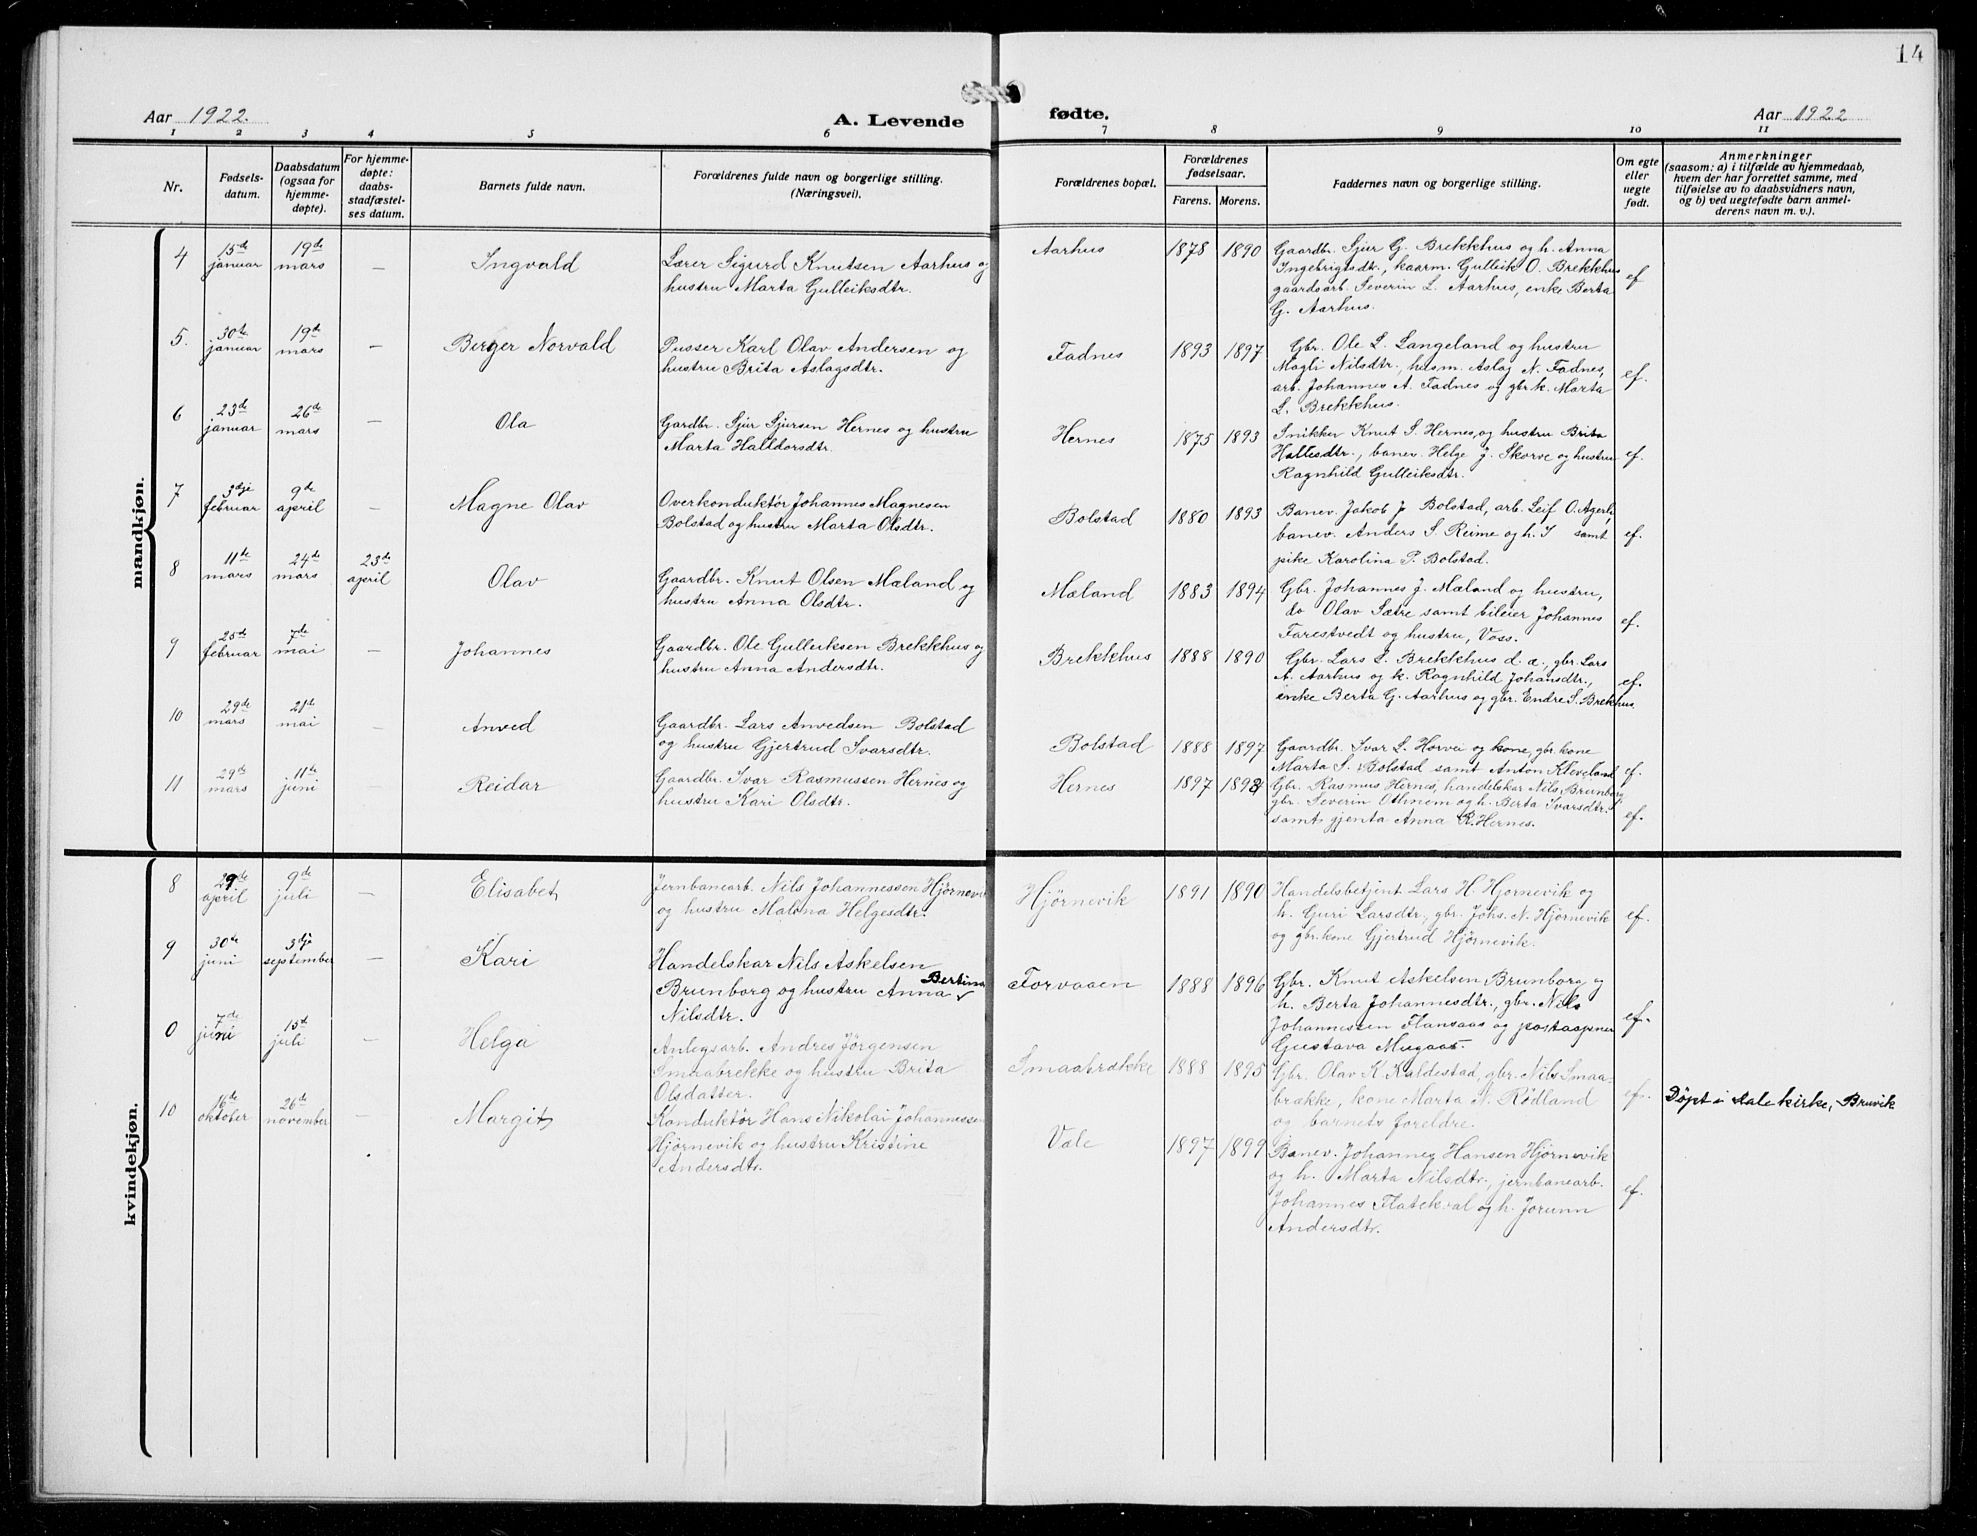 14
Aar 1922.
A. Levende
fødte.
Aar 1922
1 2 3 4 5 6 7 8 9 10 11
Nr.
Fødsels-
datum.
Daabsdatum
(ogsaa for
hjemme-
døpte).
For hjemme-
døpte:
daabs-
stadfæstel-
ses datum.
Barnets fulde navn.
Forældrenes fulde navn og borgerlige stilling.
(Næringsvei).
Forældrenes bopæl.
Forældrenes
fødselsaar.
Farens. Morens.
Faddernes navn og borgerlige stilling.
Om egte
eller
uegte
født.
Anmerkninger
(saasom: a) i tilfælde av hjemmedaab,
hvem der har forrettet samme, med
tilføielse av to daabsvidners navn,
og b) ved uegtefødte barn anmel-
derens navn m. v.).
mandkjøn.
4 15de januar 19de mars — Ingvald
Lærer Sigurd Knutsen Aarhus og
hustru Marta Gulleiksdtr.
Aarhus 1878 1890
Gaardbr. Sjur G. Brekkhus og h. Anna
Ingebrigtsdtr., kaarm. Gulleik O. Brekkhus
gaardsarb. Severin L. Aarhus, enke Berta
G. Aarhus.
ef
5. 30te januar 19de mars — Berger Norvald
Pusser Karl Olav Andersen og
hustru Brita Aslagsdtr.
Fadnes 1893 1897
Gbr. Ole L. Langeland og hustru
Magli Nilsdtr., husm. Aslag N. Fadnes,
arb. Johannes A. Fadnes og gbr.k. Marta
L. Brekkhus.
ef.
6 23de januar 26de mars — Ola
Gardbr. Sjur Sjursen Hernes og hustru
Marta Halldorsdtr.
Hernes 1875 1893
Snikker Knut S. Hernes, og hustru Brita
Hallesdtr., banev. Helge J. Skorve og hustru
Ragnhild Gulleiksdtr.
ef.
7 3dje februar 9de april — Magne Olav
Overkonduktór Johannes Magnesen
Bolstad og hustru Marta Olsdtr.
Bolstad 1880 1893
Banev. Jakob J. Bolstad, arb. Leif O. Agerh,
banev. Anders S. Reime og h. I samt
pike Karolina P. Bolstad.
ef.
8 11te mars 24de mars 23de april Olav
Gaardbr. Knut Olsen Mæland og
hustru Anna Olsdtr.
Mæland 1883 1894
Gbr. Johannes J. Mæland og hustru,
do Olav Sætre samt bileier Johannes
Farestvedt og hustru, Voss.
ef.
9 25de februar 7de mai — Johannes
Gaardbr. Ole Gulleiksen Brekkhus og
hustru Anna Andersdtr.
Brekkhus 1888 1890
Gbr. Lars L. Brekkhus d. æ., gbr. Lars
A. Aarhus og k. Ragnhild Johansdtr.,
enke Berta G. Aarhus og gbr. Endre S. Brekhus
ef.
10 29de mars 21de mai — Anved
Gaardbr. Lars Anvedsen Bolstad
og hustru Gjertrud Ivarsdtr.
Bolstad 1888 1897
Gaardbr. Ivar L. Horvei og kone, gbr. kone
Marta S. Bolstad samt Anton Kleveland
ef.
11 29de mars 11te juni — Reidar
Gaardbr. Ivar Rasmussen Hernes og
hustru Kari Olsdtr.
Hernes 1897
Gbr. Rasmus Hernes, handelskar Nils Brunborg,
gbr. Severin Othnem og h. Berta Ivarsdtr.
samt gjenta Anna R. Hernes.
ef.
kvindekjøn.
8 29de april 9de juli — Elisabet
Jernbanearb. Nils Johannessen Hjørnevik
og hustru Malena Helgesdtr.
Hjørnevik 1891 1890
Handelsbetjent Lars H. Hjørnevik og
h. Guri Larsdtr., gbr. Johs. N. Hjørnevik
og gbr.kone Gjertrud Hjørnevik.
ef.
9 30te juni 3dje september — Kari
Handelskar Nils Askelsen
Brunborg og hustru Anna Bertina
Nilsdtr.
Forvaaen 1888 1896
Gbr. Knut Askelsen Brunborg og
h. Berta Johannesdtr., gbr. Nils
Johannessen Flansaas og postaapner
Gustava Mugaas.
ef.
0 7de juni 15de juli — Helga
Anlegsarb. Andres Jörgensen
Smaabrekke og hustru Brita
Olsdatter.
Smaabrække 1888 1895
Gbr. Olav K. Kaldestad, gbr. Nils Smaa-
brække, kone Marta N. Rødland
og barnets foreldre.
ef.
Døpt i Dale kirke, Bruvik
10 16de oktober 26de november — Margit
Konduktør Hans Nikolai Johannessen
Hjørnevik og hustru Kristine
Andersdtr.
Vale 1897 1899
Banev. Johannes Hansen Hjörnevik
og h. Marta Nilsdtr., jernbanearb.
Johannes Flatekval og h. Jorunn
Andersdtr.
ef.